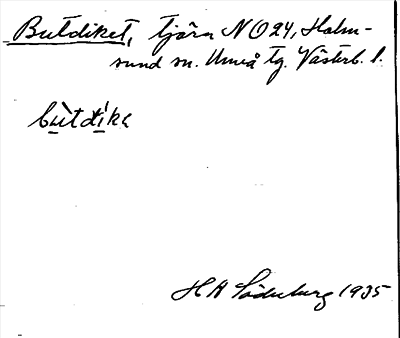 Butdiket, tjärn NO24, Holm-
sund sn. Umeå tg. Västerb. l.
bùtdíka
H A Söderberg 1935